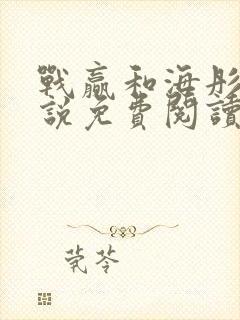 戰贏和海彤
說免費閱讀
莞苓